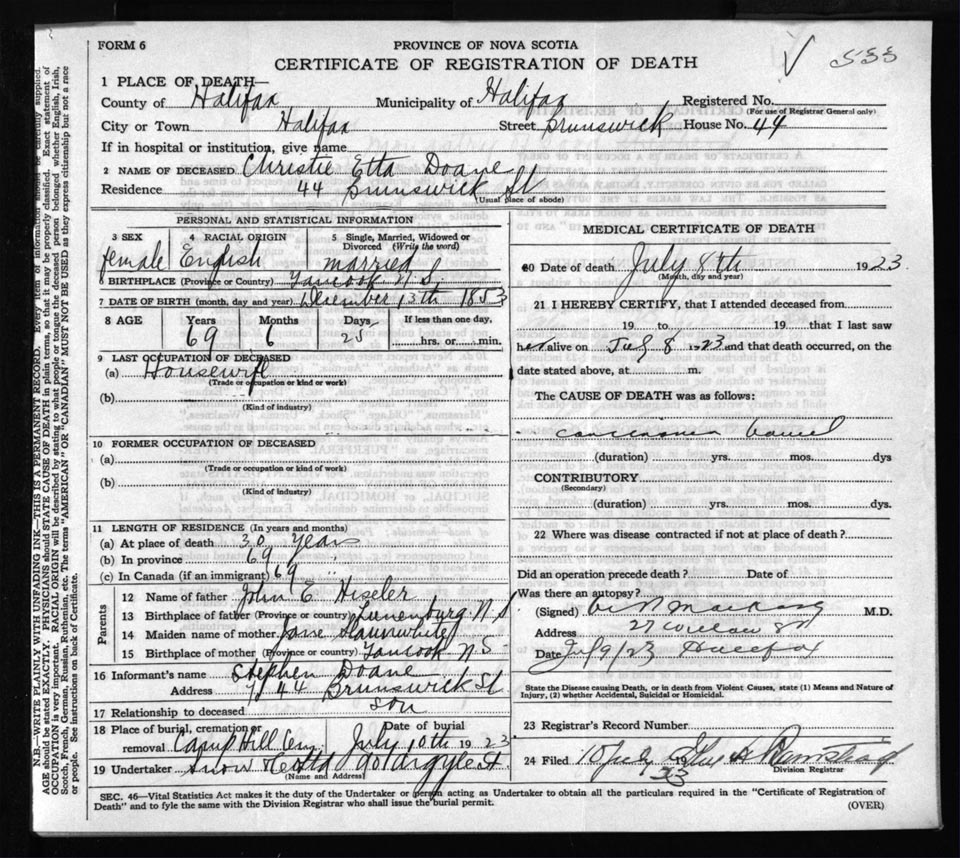 FORM 6
PROVINCE OF NOVA SCOTIA
CERTIFICATE OF REGISTRATION OF DEATH
√ 533
1 PLACE OF DEATH—
County of Halifax Municipality of Halifax Registered No.
(For use of Registrar General only)
City or Town Halifax Street Brunswick House No. 44
If in hospital or institution, give name
2 NAME OF DECEASED Christie Etta Doane
Residence 44 Brunswick St
(Usual place of abode)
PERSONAL AND STATISTICAL INFORMATION
3 SEX female
4 RACIAL ORIGIN English
5 Single, Married, Widowed or Divorced (Write the word) married
6 BIRTHPLACE (Province or Country) Tancook N.S.
7 DATE OF BIRTH (month, day and year) December 13th 1853
8 AGE Years Months Days If less than one day,
69 6 25 hrs. or min.
9 LAST OCCUPATION OF DECEASED
(a) Housewife
(Trade or occupation or kind or work)
(b)
(Kind of industry)
10 FORMER OCCUPATION OF DECEASED
(a)
(Trade or occupation or kind or work)
(b)
(Kind of industry)
11 LENGTH OF RESIDENCE (In years and months)
(a) At place of death 30 years
(b) In province 69 "
(c) In Canada (if an immigrant) 69 "
Parents
12 Name of father John E Hiseler
13 Birthplace of father (Province or country) Lunenburg N S
14 Maiden name of mother Jane Slaunwhite
15 Birthplace of mother (Province or country) Tancook N S
16 Informant's name Stephen Doane
Address 44 Brunswick St
17 Relationship to deceased son
18 Place of burial, cremation or removal Camp Hill Cem Date of burial July 10th 1923
19 Undertaker Snow & Co Ltd 90 Argyle St
(Name and Address)
MEDICAL CERTIFICATE OF DEATH
20 Date of death July 8th 1923
(Month, day and year)
21 I HEREBY CERTIFY, that I attended deceased from
19 to 19 that I last saw
her alive on July 8 1923 and that death occurred, on the
date stated above, at m.
The CAUSE OF DEATH was as follows:
carcinoma bowel
(duration) yrs. mos. dys
CONTRIBUTORY
(Secondary)
(duration) yrs. mos. dys.
22 Where was disease contracted if not at place of death?
Did an operation precede death? Date of
Was there an autopsy?
(Signed) M.D.
Address 27
Date July 9/23 Halifax
State the Disease causing Death, or in death from Violent Causes, state (1) Means and Nature of Injury, (2) whether Accidental, Suicidal or Homicidal.
23 Registrar's Record Number
24 Filed 10 July 1923
Division Registrar
SEC. 46—Vital Statistics Act makes it the duty of the Undertaker or person acting as Undertaker to obtain all the particulars required in the "Certificate of Registration of
Death" and to fyle the same with the Division Registrar who shall issue the burial permit.
(OVER)
N.B.—WRITE PLAINLY WITH UNFADING INK—THIS IS A PERMANENT RECORD. Every item of information should be carefully supplied.
AGE should be stated EXACTLY. PHYSICIANS should STATE CAUSE OF DEATH in plain terms, so that it may be properly classified. Exact statement of
OCCUPATION is very important. RACIAL ORIGIN will be described by stating to what people or tongue the deceased person belonged whether English, Irish,
Scotch, French, German, Russian, Ruthenian, etc. The terms "AMERICAN" OR "CANADIAN" MUST NOT BE USED as they express citizenship but not a race
or people. See instructions on back of Certificate.